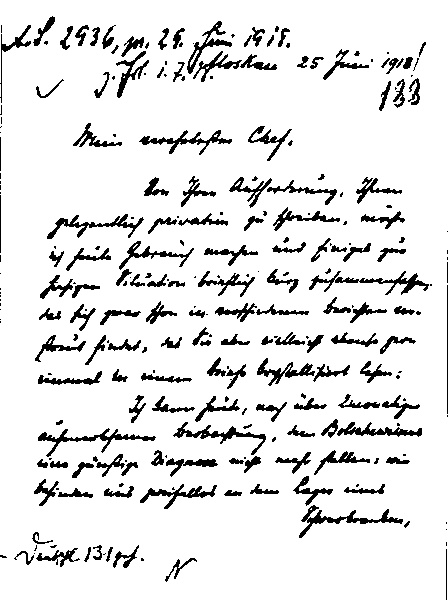 A.S. 2936, pr. 29. Juni 1918.
Moskau 25 Juni 1918
133
Mein verehrtester Chef,
Von Ihrer Aufforderung, Ihnen
gelegentlich privatim zu schreiben, möchte
ich heute Gebrauch machen und Einiges zur
hiesigen Situation brieflich kurz zusammenfassen,
das sich zwar schon in verschiedenen Berichten ver-
streut findet, das Sie aber vielleicht ebenso gern
einmal in einem Briefe krystallisiert lesen:
Ich kann heute, nach über 2 monatiger
aufmerksamer Beobachtung, dem Bolschewismus
eine günstige Diagnose nicht mehr stellen: wir
befinden uns zweifellos an dem Lager eines
Schwerkranken,
Deutschl 131 geh.
N